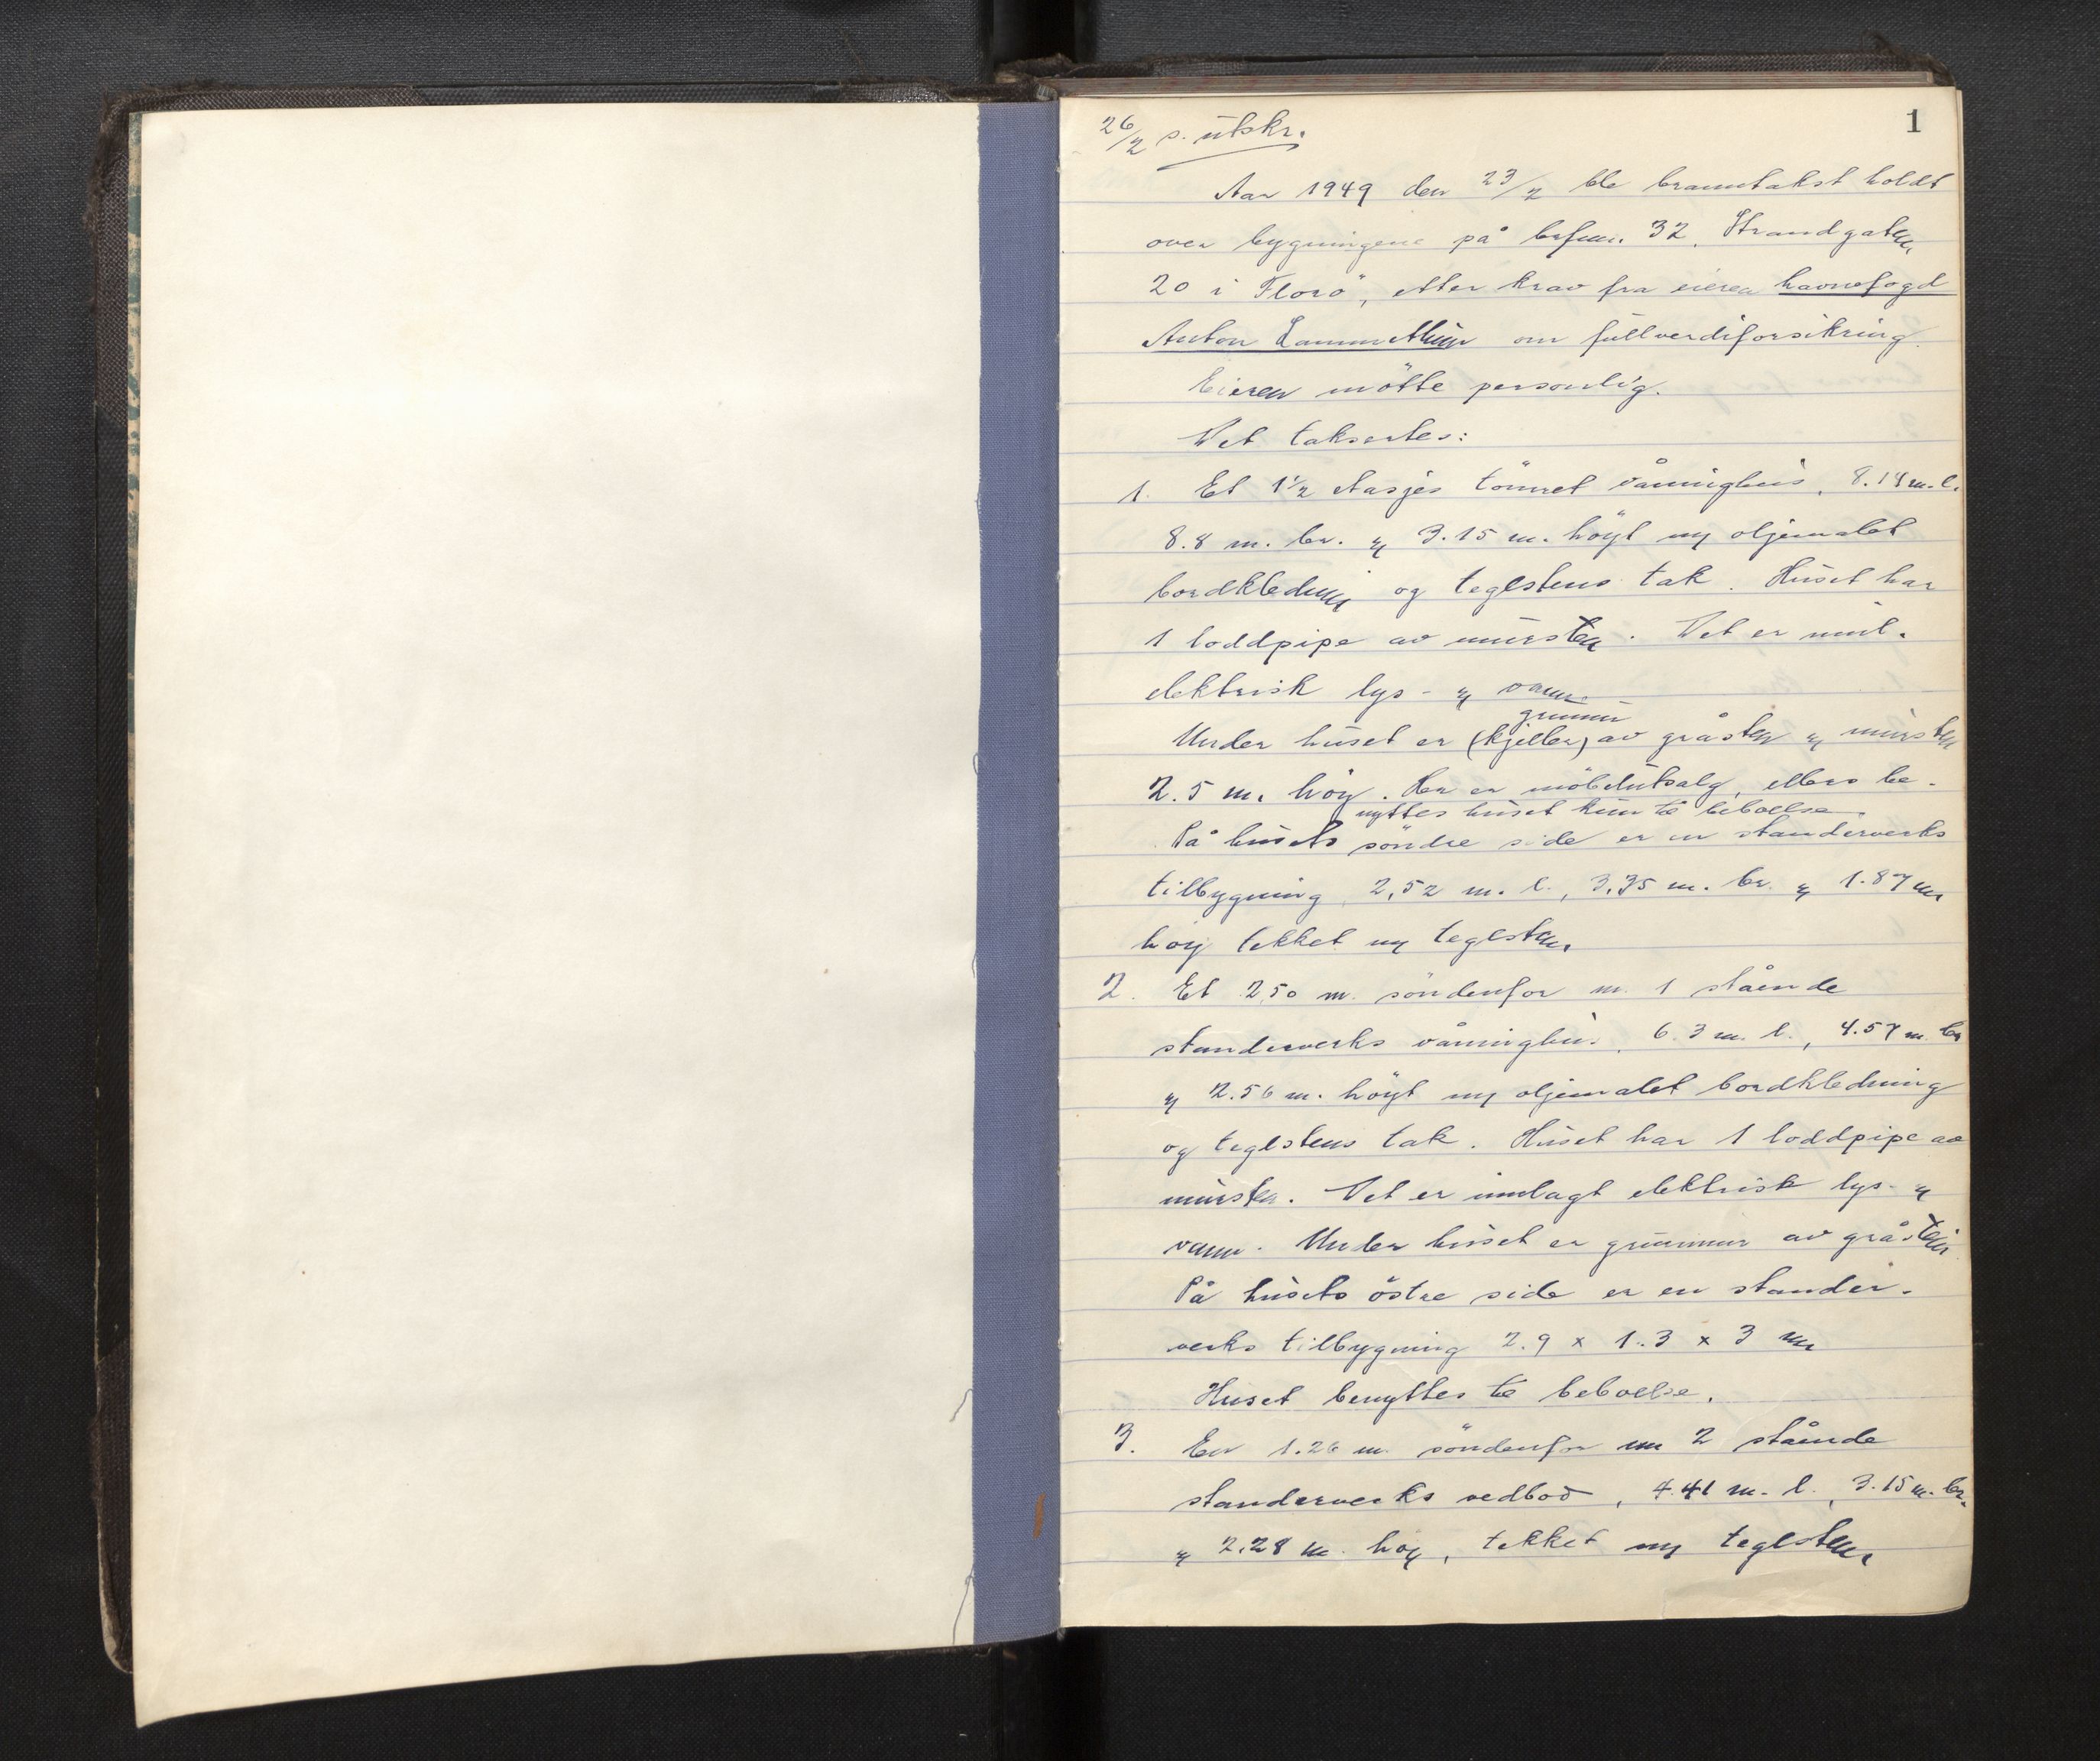 1
26/2 s. utskr.
Aar 1949 den 23/2 ble branntakst holdt
over bygningene på brfnr. 32, Strandgaten
20 i Florö, etter krav fra eieren havnefogd
Anton om fullverdiforsikring.
Eieren mötte personlig.
Det taksertes:
1. Et 1½ etasjes tömret våningshus, 8.14 m. l.
8.8 m. br. og 3.15 m. höyt m/ oljemalet
bordkledning og teglstens tak. Huset har
1 loddpipe av mursten. Det er innl.
elektrisk lys- og vann.
grunnmur
Under huset er (kjeller) av gråsten og mursten
2.5 m. höy. Her er möbelutsalg, ellers be-
nyttes huset kun til beboelse.
På husets söndre side er en standerverks
tilbygning, 2,52 m. l., 3,35 m. br. og 1.87 m.
höy tekket m/ teglsten.
2. Et 2,50 m. söndenfor nr. 1 stående
standerverks våningshus, 6.3 m. l., 4.57 m. br
og 2.56 m. höyt m/ oljemalet bordkledning
og teglstens tak. Huset har 1 loddpipe av
mursten. Det er innlagt elektrisk lys- og
vann. Under huset er grunnmur av gråsten
På husets östre side er en stander-
verks tilbygning 2.9 x 1.3 x 3 m.
Huset benyttes til beboelse.
3. En 1.26 m. söndenfor nr 2 stående
standerverks vedbod, 4.41 m. l., 3.15 m. br.
og 2.28 m. höy, tekket m/ teglsten.